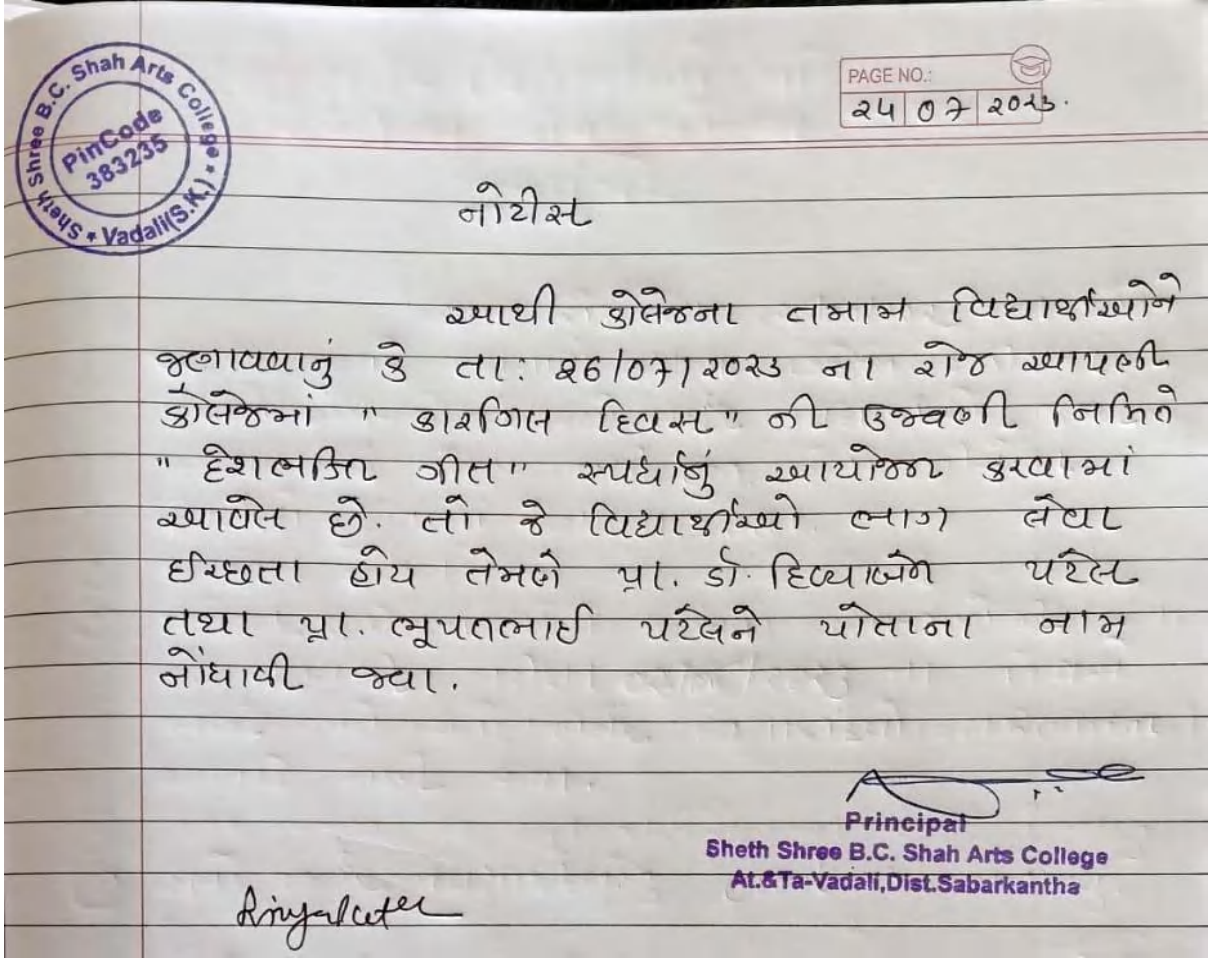 Sheth Shree B.C. Shah Arts College * Vadali(S.K.) *
PinCode
383235
PAGE NO.:
24 07 2023.
નોટીસ
આથી કોલેજના તમામ વિદ્યાર્થીઓને
જણાવવાનું કે તા: ૨6/07/૨0૨3 ના રોજ આપણી
કૉલેજમાં " કારગિલ દિવસ" ની ઉજવણી નિમિતે
" દેશભક્તિ ગીત" સ્પર્ધાનું આયોજન કરવામાં
આવેલ છે. તો જે વિદ્યાર્થીઓ ભાગ લેવા
ઈચ્છતા હોય તેમણે પ્રા. ડૉ. દિવ્યાબેન પટેલ
તથા પ્રા. ભૂપતભાઈ પટેલને પોતાના નામ
નોંધાવી જવા.
Principal
Sheth Shree B.C. Shah Arts College
At.&Ta-Vadali,Dist.Sabarkantha